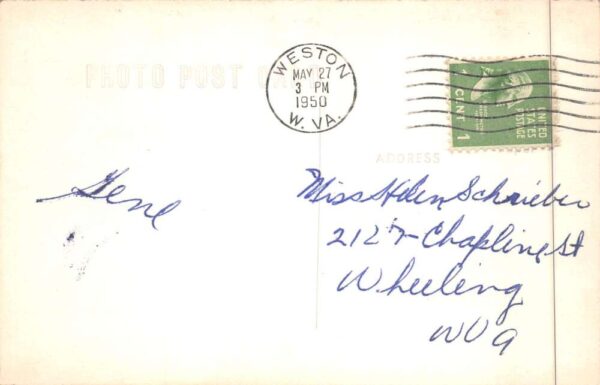 PHOTO POST CARD
WESTON
MAY 27
3 PM
1950
W. VA.
UNITED
STATES
POSTAGE
1 CENT 1
ADDRESS
Gene
Miss Helen Schrieber
2127 Chapline St
Wheeling
W Va